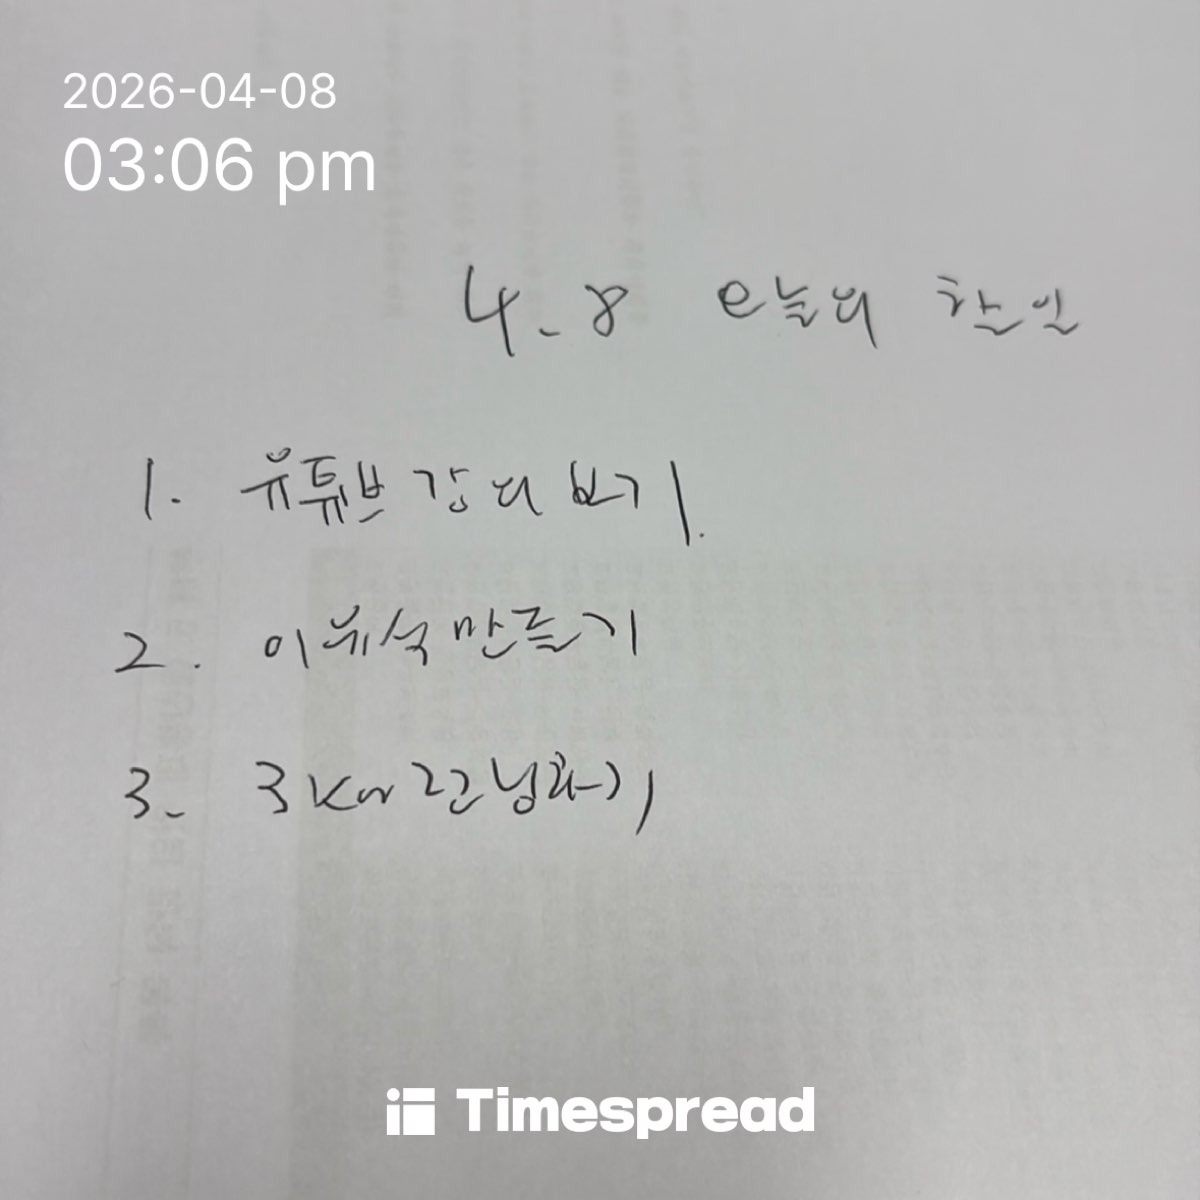 2026-04-08
03:06 pm
4.8 오늘의 한일
1. 유튜브 강의 보기.
2. 이유식 만들기
3. 3km 러닝하기
Timespread